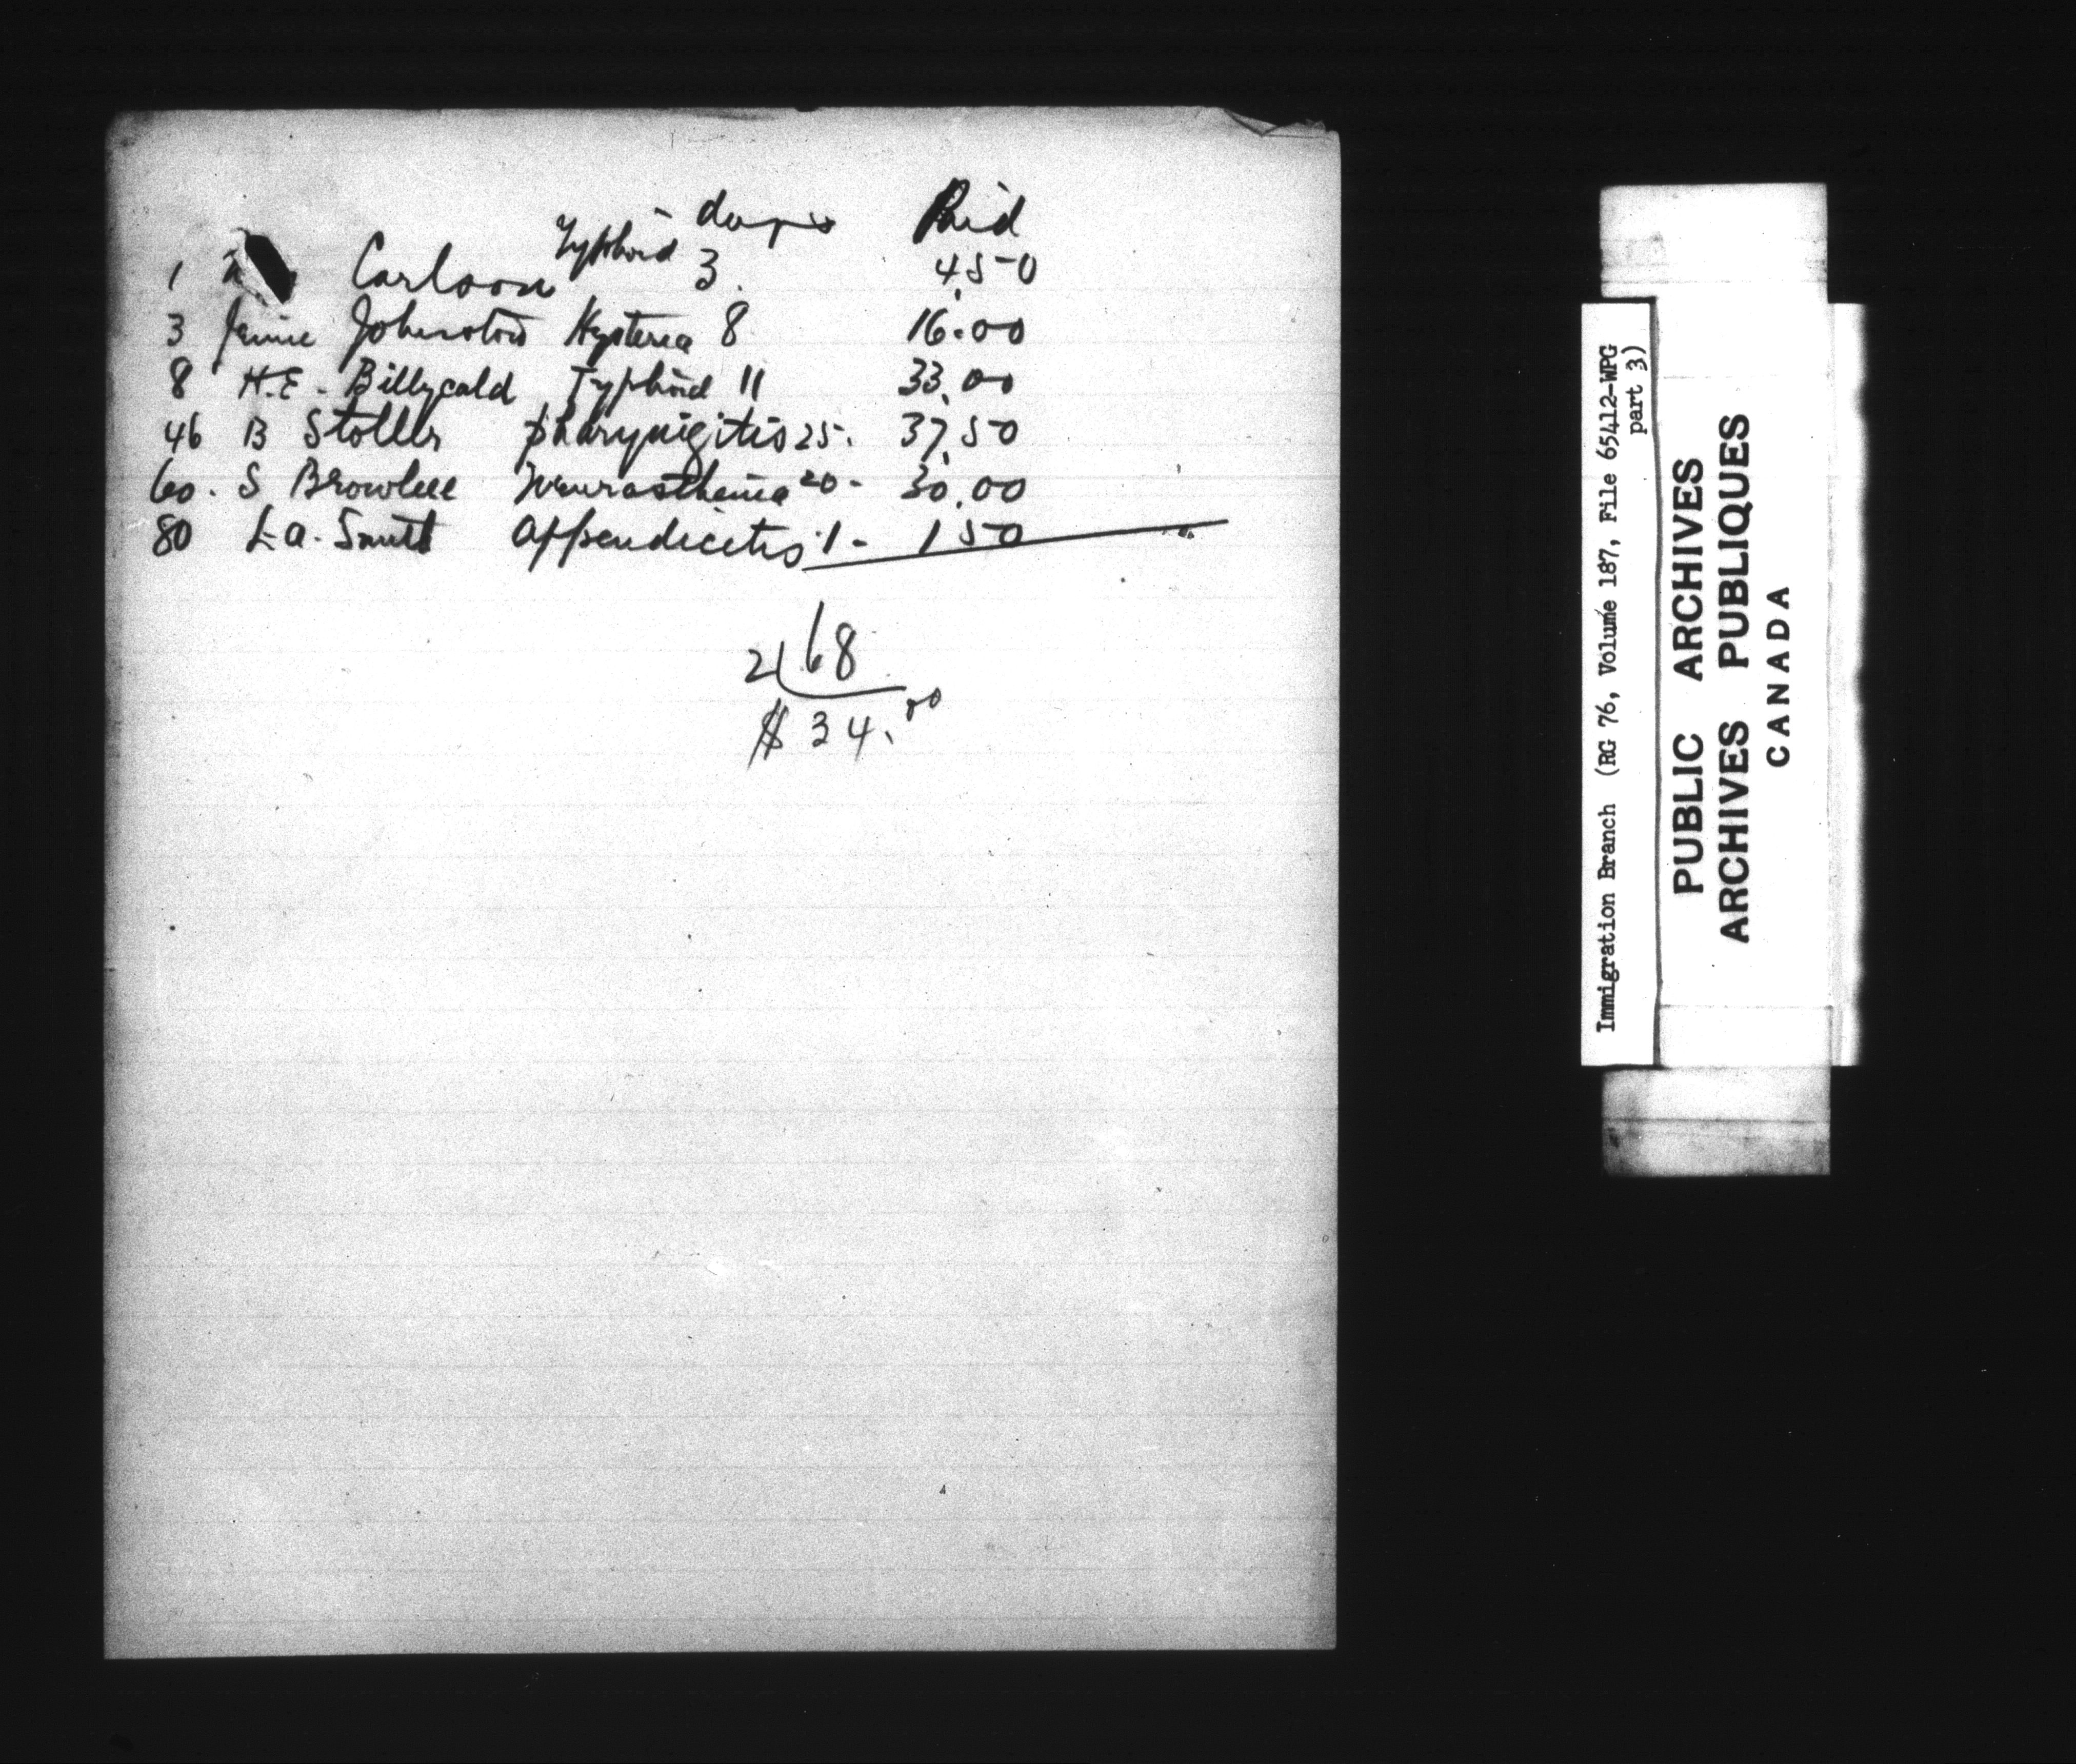 days Paid
1 Carlson Typhoid 3. 4.50
3 Jennie Johnston Hysteria 8 16.00
8 H.E. Billycald Typhoid 11 33.00
46 B Stoller pharynigitis 25. 37.50
60. S Brownlee Neurasthenia 20- 30.00
80 L.a. Smith appendicetis 1- 1 50
2 68
$ 34.00
Immigration Branch (RG 76, Volume 187, File 65412-WPG
part 3)
PUBLIC ARCHIVES
ARCHIVES PUBLIQUES
CANADA